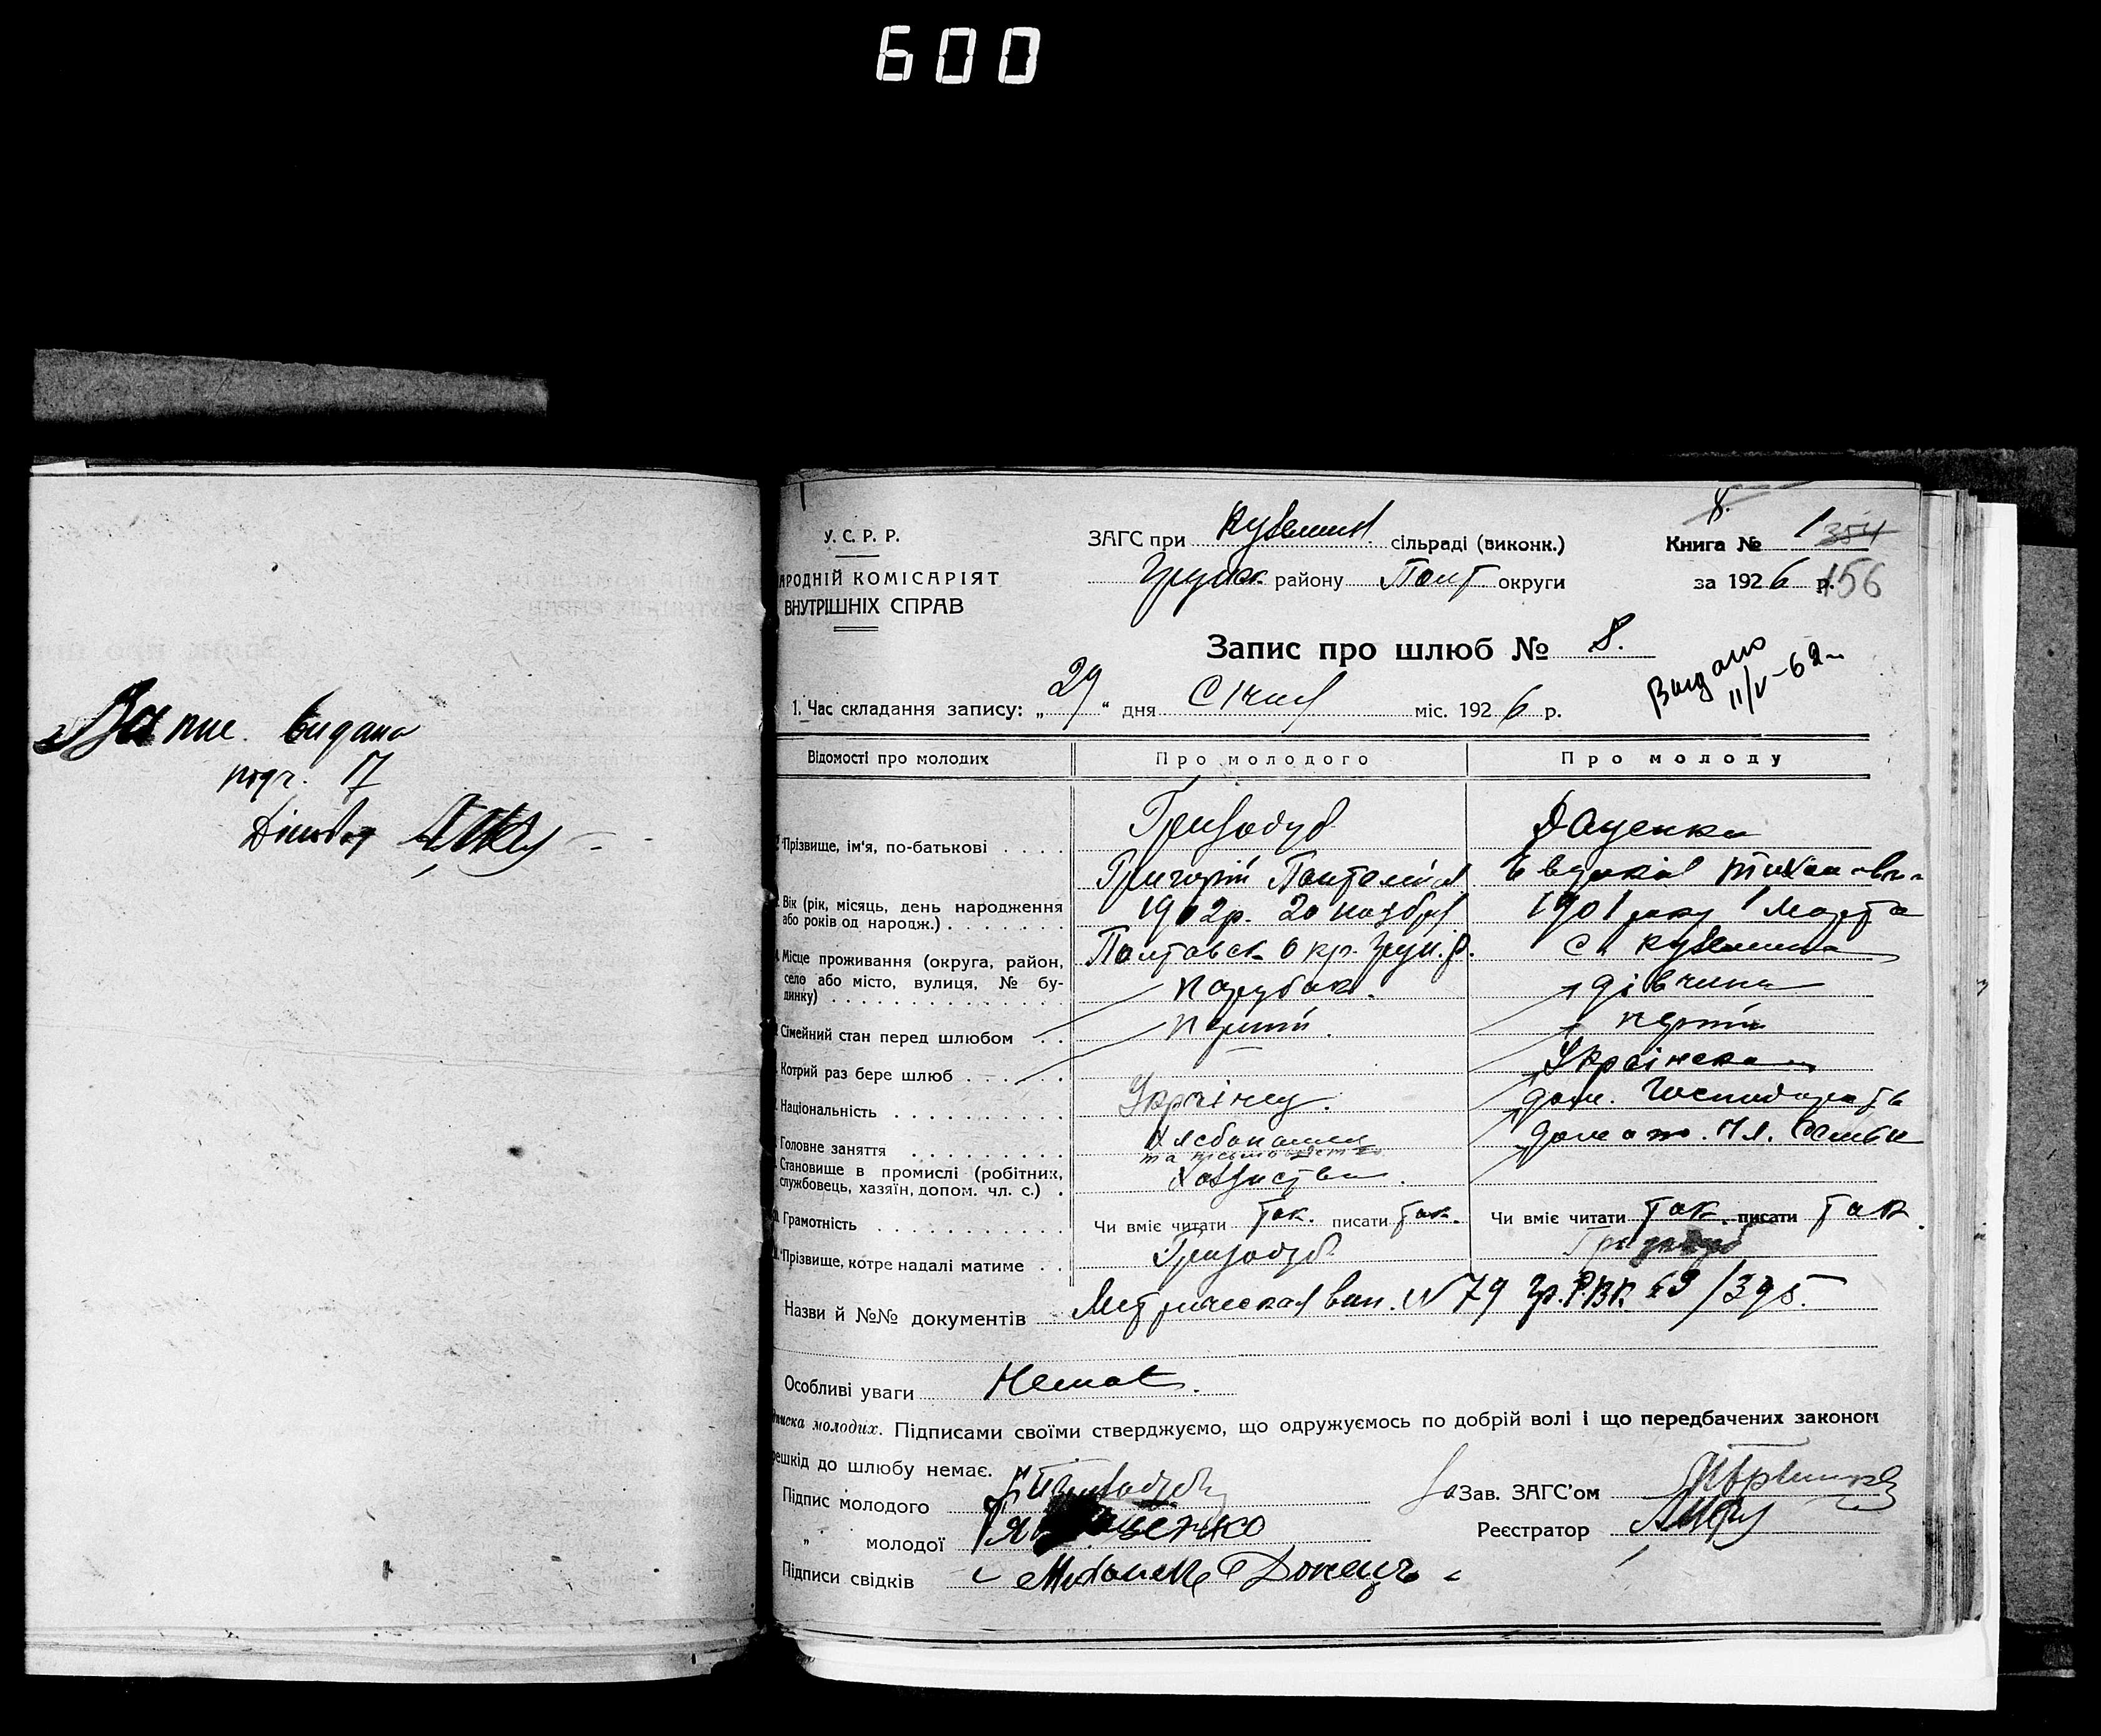 600
видано
Діловод
У. С. Р. Р.
АРОДНІЙ КОМІСАРІЯТ
ВНУТРІШНІХ СПРАВ
ЗАГС при сільраді (виконк.)
району Полт округи
8.
Книга № 1 354
за 1926 р. 156
Запис про шлюб № 8.
Видано
11/V-62
1. Час складання запису: „29" дня Січня міс. 1926 р.
Відомості про молодих
Про молодого
Про молоду
Прізвище, ім'я, по-батькові . . . .
Гризодуб
Даценко
Григорій
Евдокія
Вік (рік, місяць, день народження
або років од народж.) . . . . . . .
1902р. 20 ноября
1901 року 1 Марта
Місце проживання (округа, район,
село або місто, вулиця, № бу-
динку) . . . . . . . . . . . . .
Полтавск. Окр. Грун. р.
с.
Сімейний стан перед шлюбом . .
парубок.
дівчина
Котрий раз бере шлюб . . . . . .
перший.
перший
Національність . . . . . . . . . .
Українец.
Українска
Головне заняття . . . . . . . . .
Хлебопашец
дом. Господарств
Становище в промислі (робітник,
службовець, хазяїн, допом. чл. с.) .
та письмоводство
домаш. чл. семьи
Грамотність . . . . . . . . . . .
Чи вміє читати так. писати так.
Чи вміє читати так. писати так.
Прізвище, котре надалі матиме . .
Гризодуб
Гризодуб
Назви й №№ документів Метрическая вип. N 79 Гр.Р.В.К. 69/395.
Особливі уваги Немає.
писка молодих. Підписами своїми стверджуємо, що одружуємось по добрій волі і що передбачених законом
решкід до шлюбу немає.
Підпис молодого Гризодуб
За Зав. ЗАГС'ом
„ молодої
Реєстратор
Підписи свідків Донець